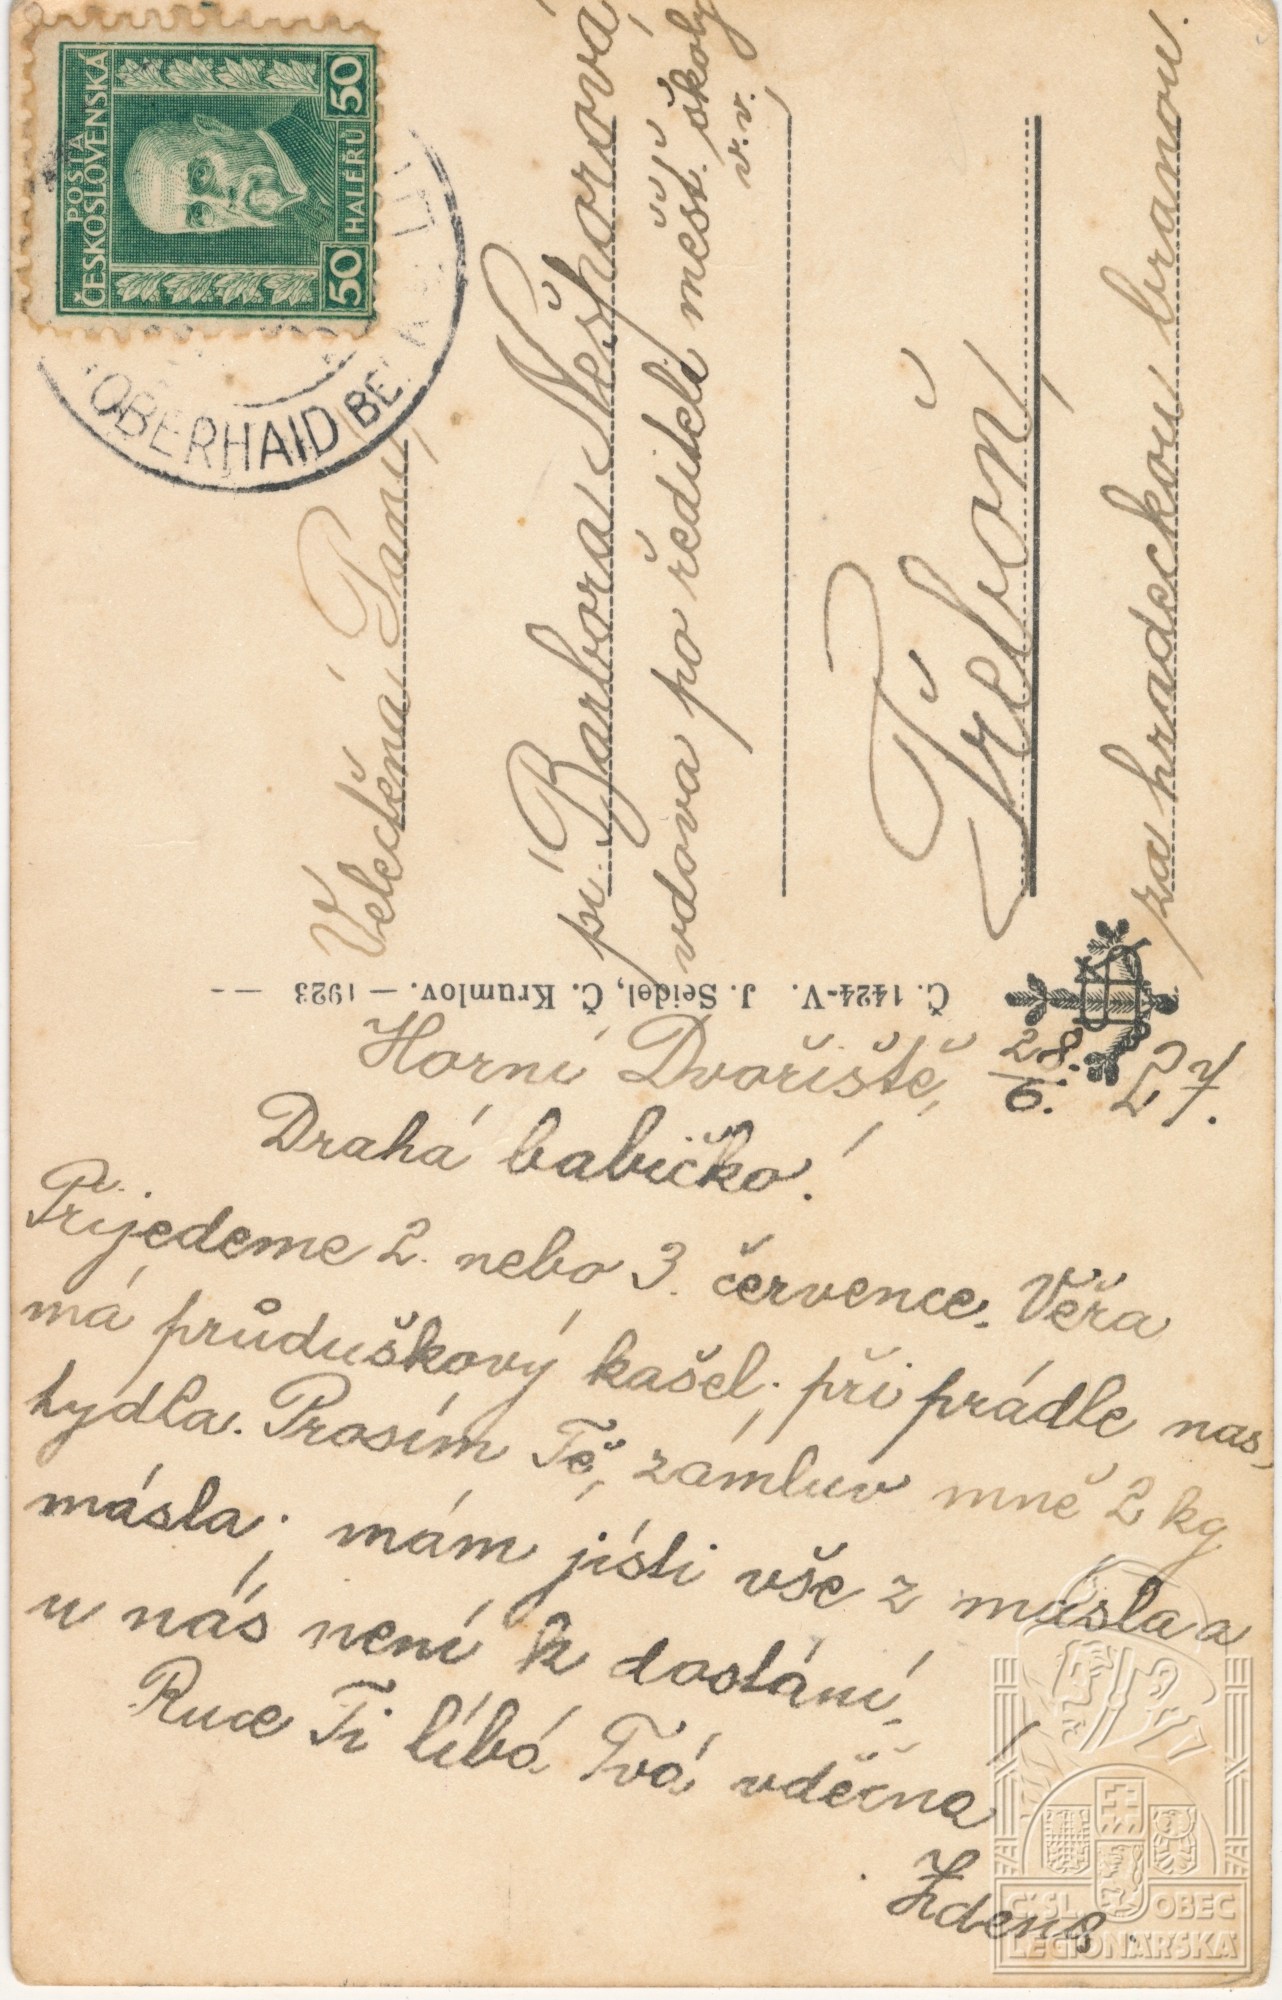 POŠTA
ČESKOSLOVENSKÁ
50 HALÉŘŮ 50
OBERHAID
Velectěná Paní,
pí. Barbora Nešporová,
vdova po řediteli měšť. školy
v. v.
Třeboň,
za hradeckou branou.
Č. 1424-V. J. Seidel, Č. Krumlov. — 1923 — -
Horní Dvořiště, 28./6. 27.
Drahá babičko!
Přijedeme 2. nebo 3. července. Věra
má průduškový kašel, při prádle nas,
tydla. Prosím Tě, zámluv mně 2 kg
másla; mám jísti vše z másla a
u nás není k dostání.
Ruce Ti líbá Tvá vděčná
Zdena.
ČSL. OBEC
LEGIONÁŘSKÁ